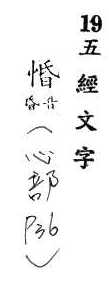 19五經文字
惛（心部P36）